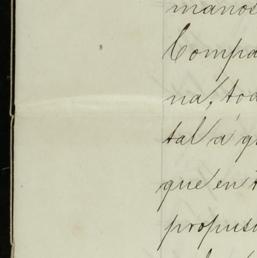 manos
Compa
na, tod
tal a q
que en t
propus